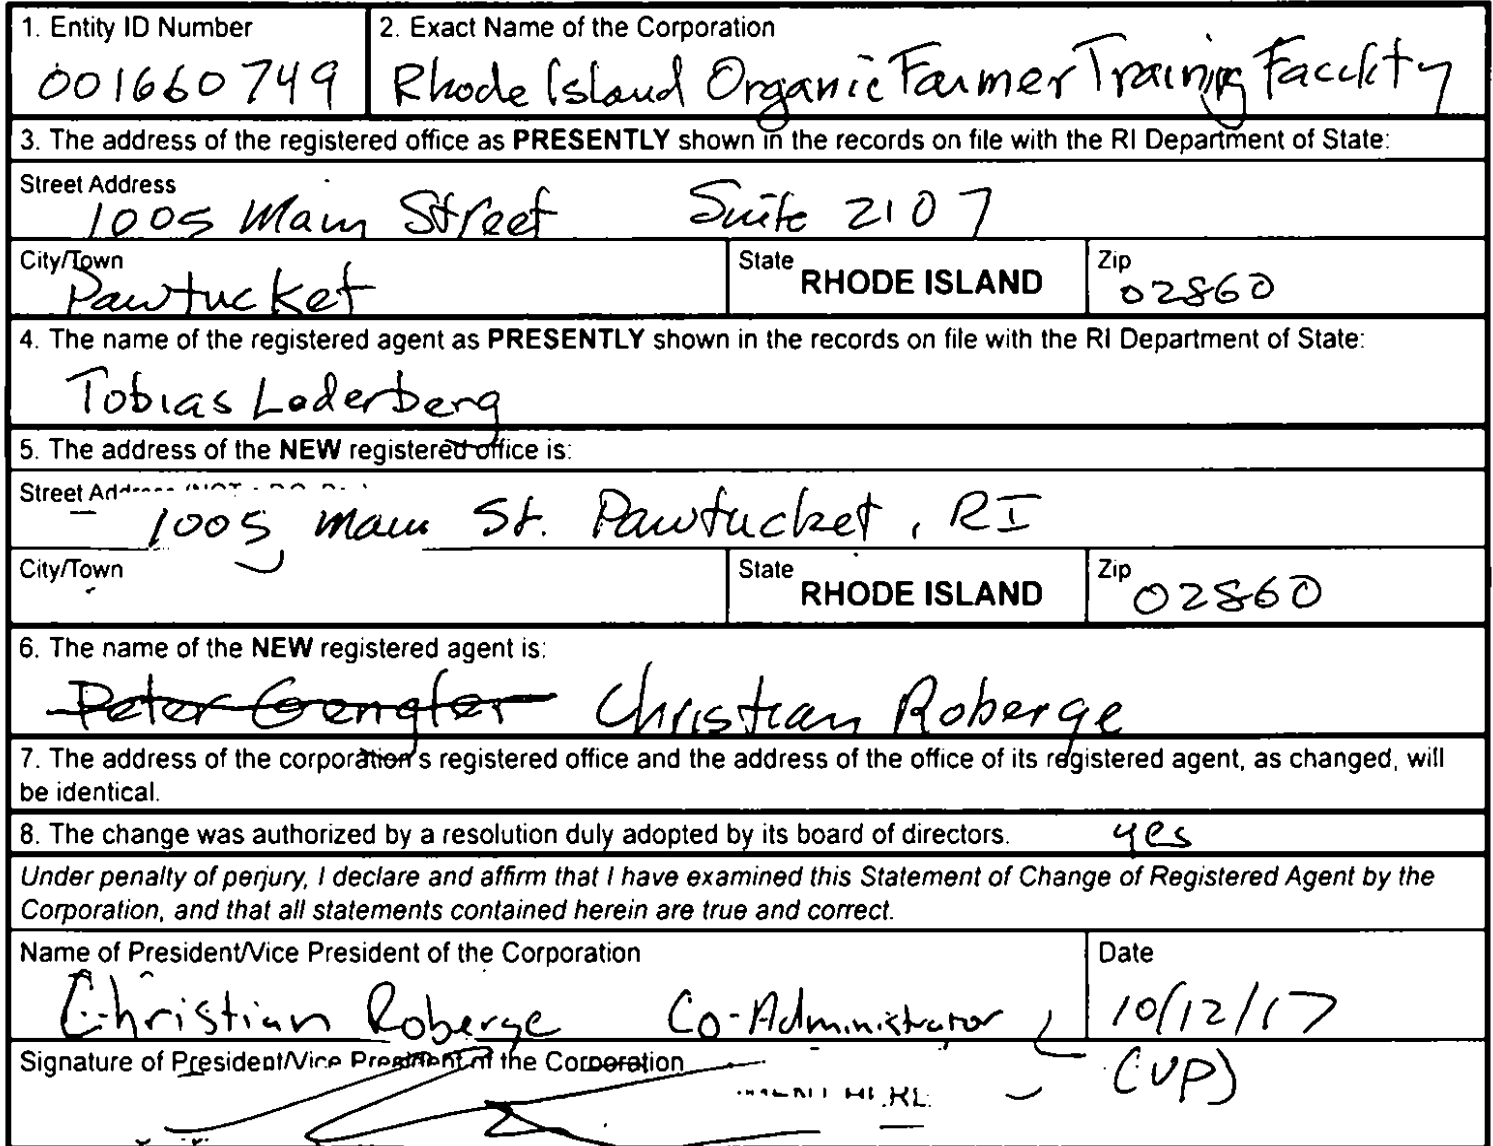 1. Entity ID Number
001660749
2. Exact Name of the Corporation
Rhode Island Organic Farmer Training Facility
3. The address of the registered office as PRESENTLY shown in the records on file with the RI Department of State:
Street Address
1005 Main Street Suite 2107
City/Town
Pawtucket
State
RHODE ISLAND
Zip
02860
4. The name of the registered agent as PRESENTLY shown in the records on file with the RI Department of State:
Tobias Lederberg
5. The address of the NEW registered office is:
Street
1005 Main St. Pawtucket, RI
City/Town
State
RHODE ISLAND
Zip
02860
6. The name of the NEW registered agent is:
Peter Gengler Christian Roberge
7. The address of the corporation's registered office and the address of the office of its registered agent, as changed, will
be identical.
8. The change was authorized by a resolution duly adopted by its board of directors. yes
Under penalty of perjury, I declare and affirm that I have examined this Statement of Change of Registered Agent by the
Corporation, and that all statements contained herein are true and correct.
Name of President/Vice President of the Corporation
Christian Roberge Co-Administrator
Date
10/12/17
Signature of President/Vice President of the Corporation
(VP)